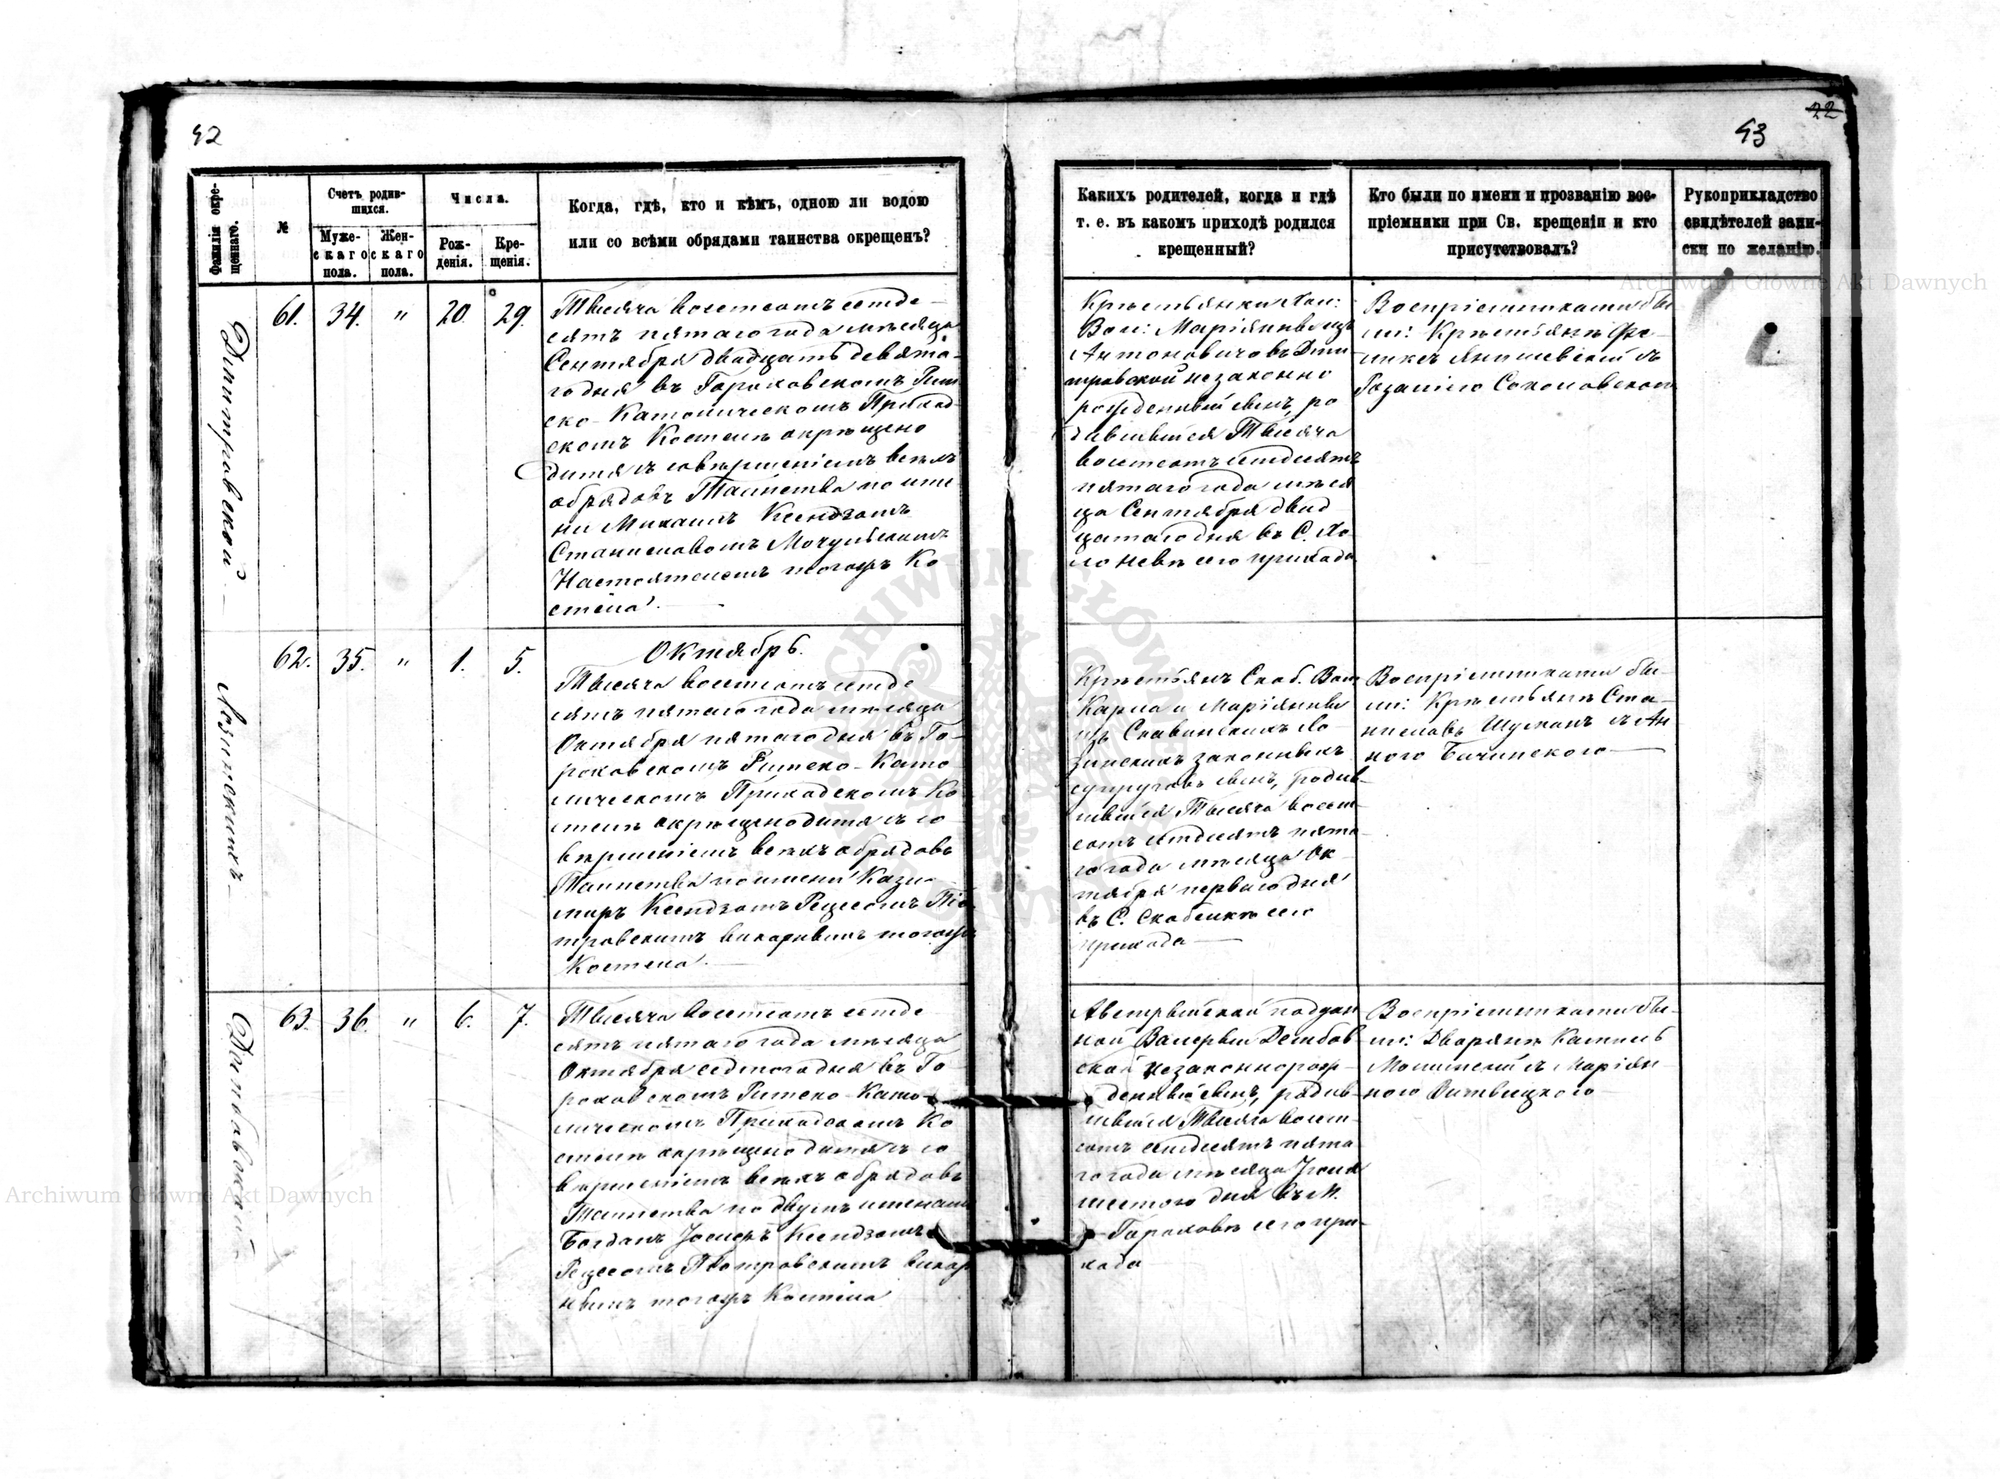 42
43
22
Фамилія окре-
щеннаго.
№
Счетъ родив-
шихся.
Муже-
скаго
пола.
Жен-
скаго
пола.
Числа.
Рож-
денія.
Кре-
щенія.
Когда, гдѣ, кто и кѣмъ, одною ли водою
или со всѣми обрядами таинства окрещенъ?
Каких родителей, когда и гдѣ
т. е. въ какомъ приходѣ родился
крещенный?
Кто были по имени и прозванію вос-
пріемники при Св. крещеніи и кто
присутствовалъ?
Рукоприкладство
свидѣтелей запи-
ски по желанію.
Дмитровской
61.
34.
"
20.
29.
Тысяча восемсотъ семде-
сятъ пятаго года мѣсяца
Сентября двадцать девята-
го дня въ Гороховскомъ Рим
ско-Католическомъ Приход-
скомъ Костелѣ окрещено
дитя съ совершеніемъ всѣхъ
обрядовъ Таинства по име
ни Михаилъ Ксендзомъ
Станиславомъ
Настоятелемъ тогожъ Ко-
стела.
Крестьянки
Вол: Маріянны изъ
Антоновичовъ Дми
тровской незаконно
рожденный сынъ, ро
дившійся Тысяча
восемсотъ семдесятъ
пятаго года мѣся
ца Сентября двад
цатаго дня въ С. Хо
лоневѣ сего прихода
Воспріемниками бы
ли: Крестьянѣ Фе-
ликсъ Янишевскій съ
Розаліею Соколовскою
Лозинскихъ
62.
35.
"
1.
5.
Октябрь.
Тысяча восемсотъ семде
сятъ пятаго года мѣсяца
Октября пятаго дня въ Го-
роховскомъ Римско-Като-
лическомъ Приходскомъ Ко
стелѣ окрещено дитя съ со-
вершеніемъ всѣхъ обрядовъ
Таинства по имени Кази-
миръ Ксендзомъ Піо
тровскимъ викарнымъ тогожъ
Костела.
Крестьянъ Скоб. Вол
Карла и Маріянны
изъ Ло-
зинскихъ законныхъ
супруговъ сынъ, родив-
шійся Тысяча восем-
сотъ семдесятъ пята-
го года мѣсяца Ок-
тября перваго дня
въ С. Скобелкѣ сего
прихода
Воспріемниками бы-
ли: Крестьянѣ Ста-
ниславъ Шуманъ съ Ан
ною
Дембовской
63.
36.
"
6.
7.
Тысяча восемсотъ семде
сятъ пятаго года мѣсяца
Октября седмого дня въ Го-
роховскомъ Римско-Като-
лическомъ Приходскомъ Ко
стелѣ окрещено дитя съ со
вершеніемъ всѣхъ обрядовъ
Таинства по двумъ именамъ
Богданъ Іосифъ Ксендзомъ
Піотровскимъ викар
нымъ тогожъ Костела
Австрыйской поддан
ной Валерыи Дембов
ской незаконнорож-
денный сынъ, родив-
шійся Тысяча восем-
сотъ семдесятъ пята
го года мѣсяца
шестого дня въ М.
Гороховѣ сего при-
хода
Воспріемниками бы-
ли: Дворянѣ Камиль
съ Маріян-
ною
Archiwum Główne Akt Dawnych
Archiwum Główne Akt Dawnych